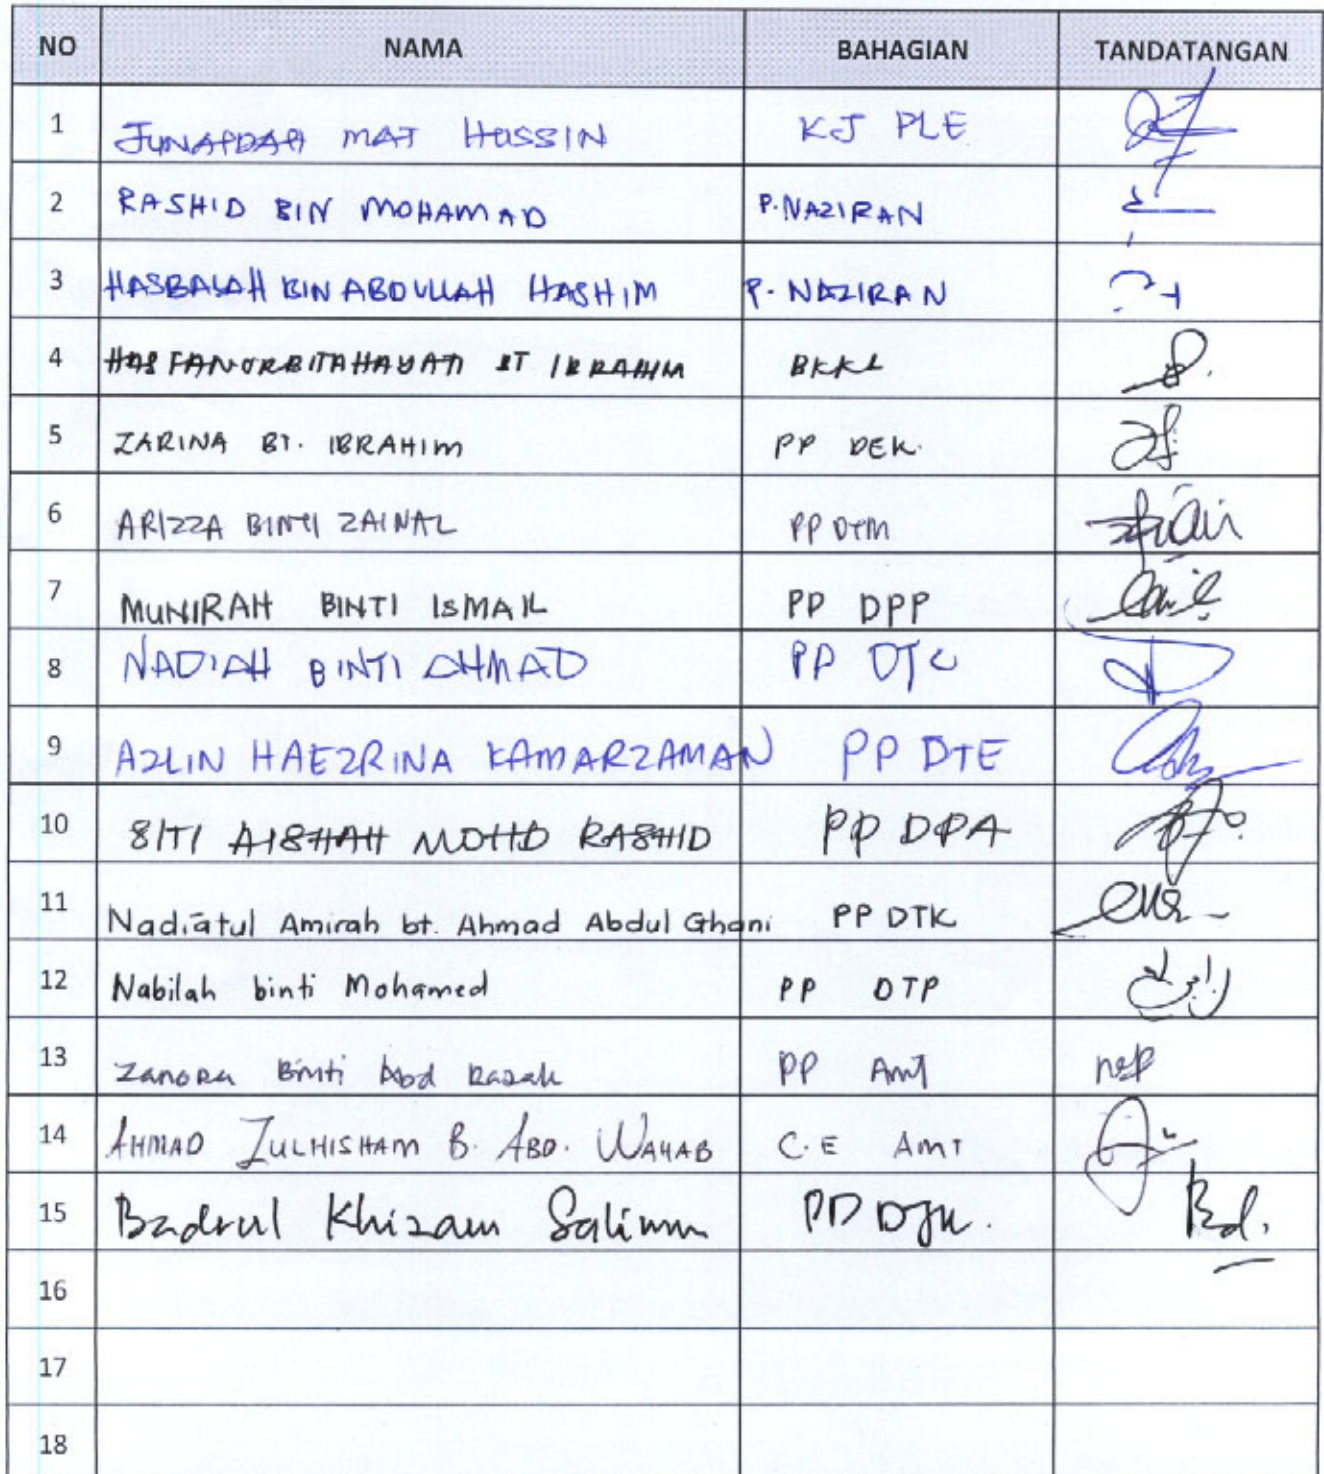 NO NAMA BAHAGIAN TANDATANGAN
1 JUNAIDAH MAT HUSSIN KJ PLE
2 RASHID BIN MOHAMAD P.NAZIRAN
3 HASBALAH BIN ABDULLAH HASHIM P. NAZIRAN
4 HASFANORBITAHAYATI BT IBRAHIM BKKL
5 ZARINA BT. IBRAHIM PP DEK.
6 ARIZZA BINTI ZAINAL PP DTM
7 MUNIRAH BINTI ISMAIL PP DPP
8 NADIAH BINTI AHMAD PP DTC
9 AZLIN HAEZRINA KAMARZAMAN PP DTE
10 SITI AISHAH MOHD RASHID PP DPA
11 Nadiatul Amirah bt. Ahmad Abdul Ghani PP DTK
12 Nabilah binti Mohamed PP DTP
13 Zanora Binti Abd Razak PP AMT
14 AHMAD ZULHISHAM B. ABD. WAHAB C.E AMT
15 Badrul Khizam Salimun PP DJK.
16
17
18